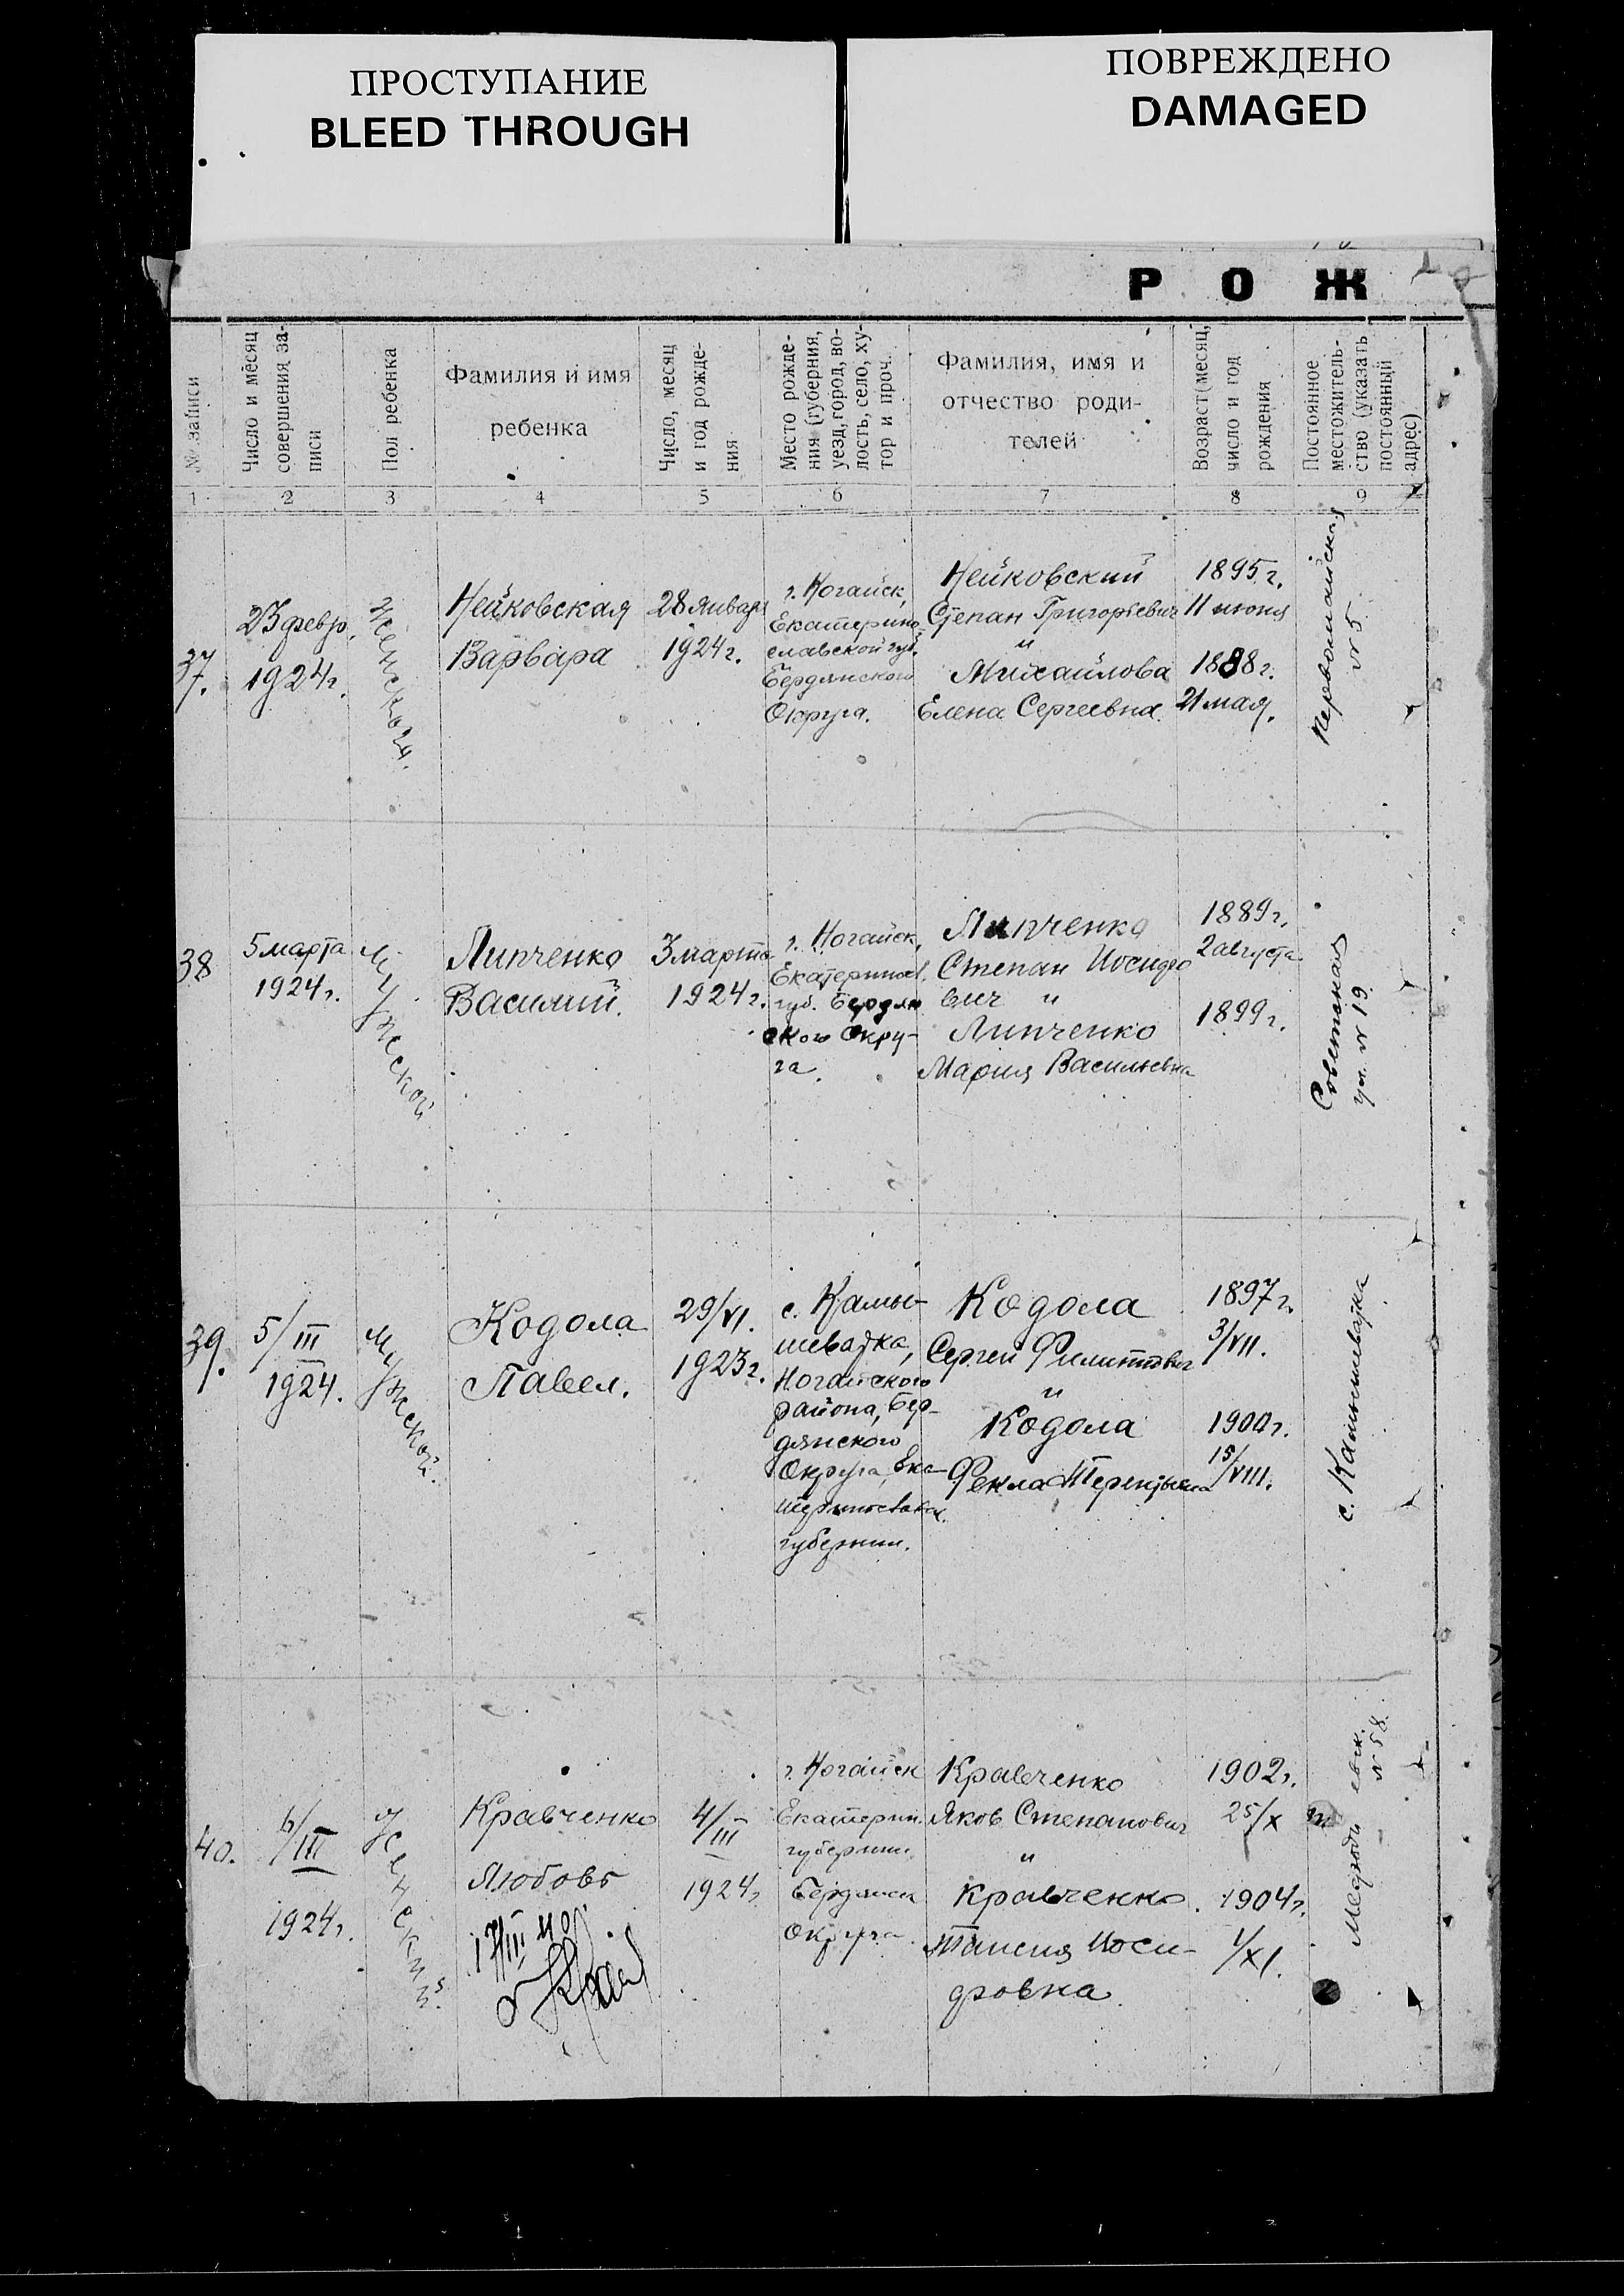 ПРОСТУПАНИЕ
BLEED THROUGH
ПОВРЕЖДЕНО
DAMAGED
РОЖ
№ записи
Число и месяц
совершения за-
писи
Пол ребенка
Фамилия и имя
ребенка
Число, месяц
и год рожде-
ния
Место рожде-
ния (губерния,
уезд, город, во-
лость, село, ху-
тор и проч.
Фамилия, имя и
отчество роди-
телей
Возраст (месяц,
число и год
рождения
Постоянное
местожитель-
ство (указать
постоянный
адрес)
1 2 3 4 5 6 7 8 9
37.
23 февр.
1924г.
Женской.
Нейковская
Варвара
28 января
1924г.
г. Ногайск,
Екатерино-
славской губ.
Бердянского
Округа.
Нейковский
Степан Григорьевич
и
Михайлова
Елена Сергеевна.
1895г.
11 июня
1888г.
21 мая.
Первомайская
№ 5.
38
5 марта
1924г.
Мужской
Липченко
Василий.
3 марта
1924г.
г. Ногайск,
Екатеринос.
губ. Бердян
ского Окру-
га.
Липченко
Степан Иосидо
вич и
Липченко
Мария Васильевна
1889г.
2 августа
1899г.
Советская
ул. № 19.
39.
5/III
1924.
Мужской.
Кодола
Павел.
29/VI.
1923г.
с. Камы-
шеватка,
Ногайского
района, Бер-
дянского
Округа, Ека-
теринославск.
губернии.
Кодола
Сергей Филиппович
и
Кодола
Фекла Терентьевна
1897г.
3/VII.
1900г.
15/VIII.
с. Камышеватка
40.
6/III
1924г.
Женский.
Кравченко
Любовь
4/III
1924г.
г. Ногайск
Екатерин.
губернии,
Бердянск
Округа.
Кравченко
Яков Степанович
и
Кравченко.
Таисия Иоси-
дровна.
1902г.
25/X
1904г.
1/XI.
№ 58.